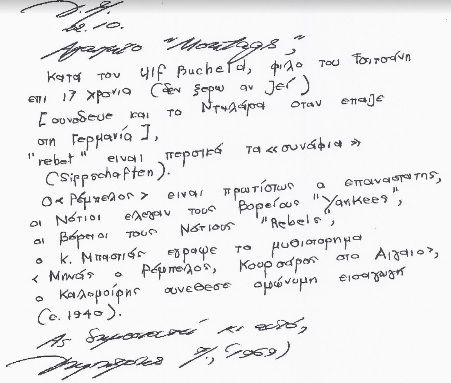 Αγαπητο "Montags",
Κατα τον Ulf Bucheld, φιλο του Τσιτσάνη
επι 17 χρονια (δεν ξερω αν ζει)
[συνοδευε και το Νταλάρα οταν επαιζε
στη Γερμανία],
"rebet" ειναι περσικά τα «συνάφια»
(Sippschaften).
Ο «Ρέμπελος» ειναι πρωτίστως ο επαναστατης,
οι Νότιοι ελεγαν τους Βορείους "Yankees",
οι Βόρειοι τους Νότιους "Rebels",
ο κ. Μπαστιάς εγραψε το μυθιστορημα
«Μηνάς ο Ρέμπελος, Κουρσάρος στο Αιγαιο»,
ο Καλομοίρης συνεθεσε ομώνυμη εισαγωγη
(c. 1940).
Ας δημοσιευτεί κι αυτό,
(1969)